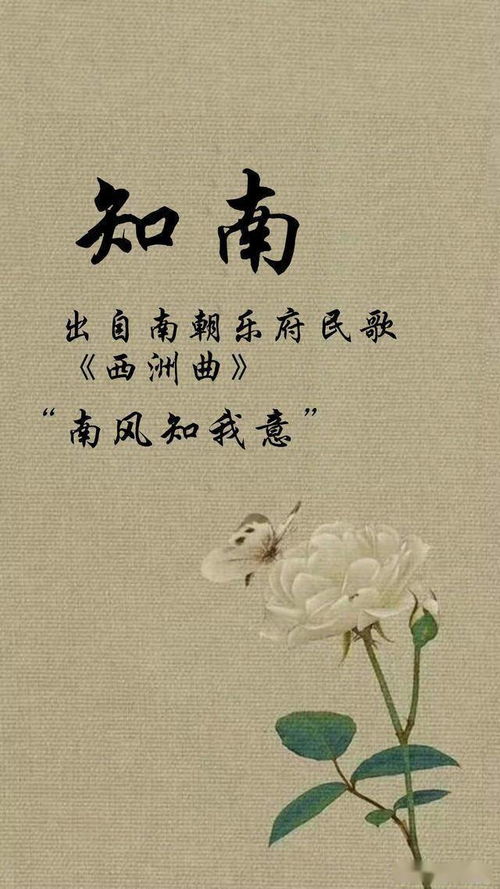 知南
出自南朝乐府民歌
《西洲曲》
“南风知我意”